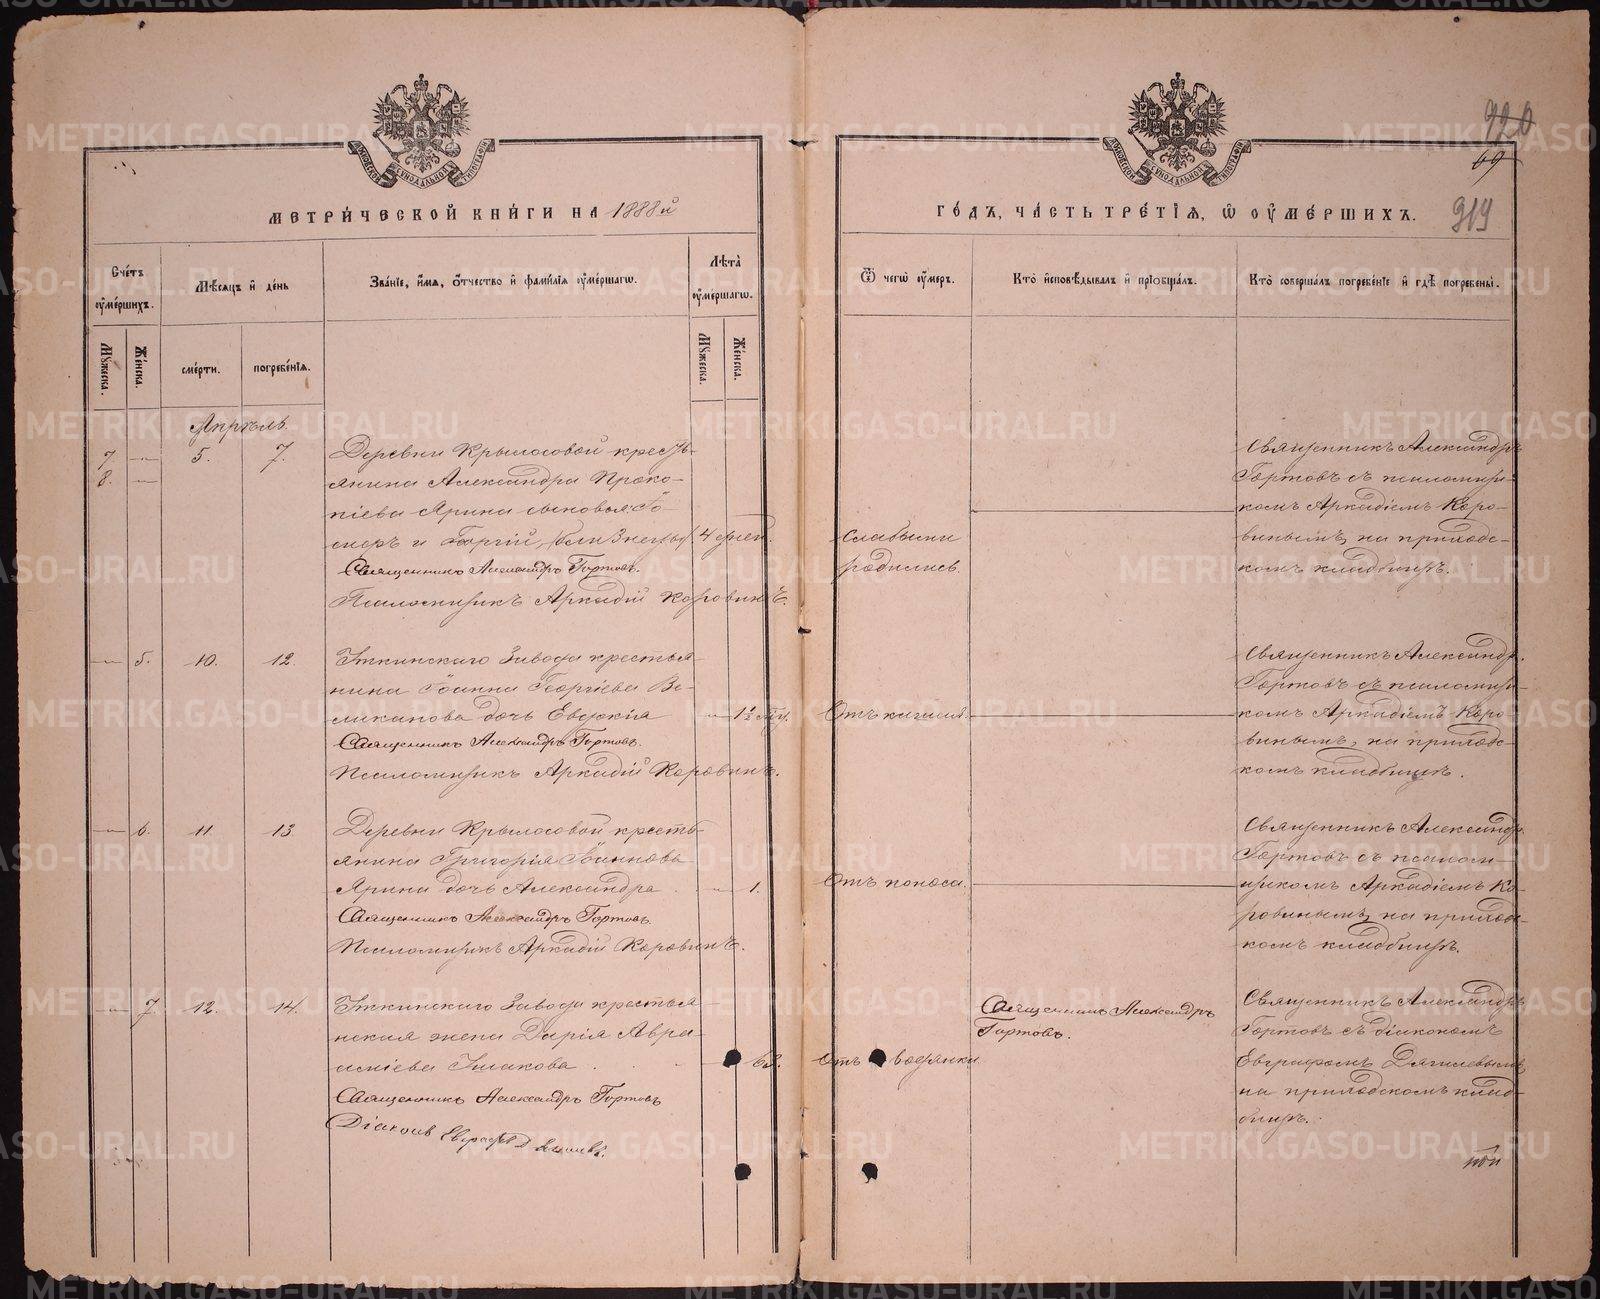 МЕТРИ́ЧЕСКОЙ КНИ́ГИ НА 1888й
ГО́ДЪ, ЧА́СТЬ ТРЕ́ТІѦ, Ѡ҆ ОУ҆МЕ́РШИХЪ.
920
69
319
Сче́тъ оу҆ме́ршихъ.
Мѣ́сѧцъ и҆ де́нь
Зва́нїе, и҆́мѧ, ѻ҆́тчество и҆ фами́лїѧ оу҆ме́ршагѡ.
Лѣ́та̀ оу҆ме́ршагѡ.
Ѿ чегѡ̀ оу҆́меръ.
Кто̀ и҆сповѣ́дывалъ и҆ прїѻбща́лъ.
Кто̀ соверша́лъ погребе́нїе и҆ гдѣ̀ погребены̀.
Мꙋ́жеска.
Же́нска.
сме́рти.
погребе́нїѧ.
Мꙋ́жеска.
Же́нска.
Апрѣль.
7 — 5. 7.
8. —
Деревни Крылосовой кресть-
янина Александра Проко-
піева Ярина сыновья:
и Георгій, /близнецы/ 4 дней.
Священникъ Александръ Гортовъ.
Псаломщикъ Аркадій Коровинъ.
слабыми
родились.
Священникъ Александръ
Гортовъ съ псаломщи-
комъ Аркадіемъ Коро-
винымъ, на приход-
комъ кладбищѣ.
— 5. 10. 12.
Уткинскаго Завода крестья-
нина Іоанна Георгіева Ве-
ликанова дочь Евдокія — 1½
Священникъ Александръ Гортовъ.
Псаломщикъ Аркадій Коровинъ.
Отъ кашля
Священникъ Александръ
Гортовъ съ псаломщи-
комъ Аркадіемъ Коро-
винымъ, на приход-
комъ кладбищѣ.
— 6. 11. 13
Деревни Крылосовой кресть-
янина Григорія Іоаннова
Ярина дочь Александра — 1.
Священникъ Александръ Гортовъ.
Псаломщикъ Аркадій Коровинъ.
Отъ поноса.
Священникъ Александръ
Гортовъ съ псалом-
щикомъ Аркадіемъ Ко-
ровинымъ, на приход-
комъ кладбищѣ.
— 7 12. 14.
Уткинскаго Завода крестья-
нская жена Дарія Авра-
міева
Священникъ Александръ Гортовъ
Діаконъ Евграфъ Дягилевъ.
Отъ водянки.
Священникъ Александръ
Гортовъ.
Священникъ Александръ
Гортовъ съ діакономъ
Евграфомъ Дягилевымъ,
на приходскомъ клад-
бищѣ.
METRIKI.GASO-URAL.RU